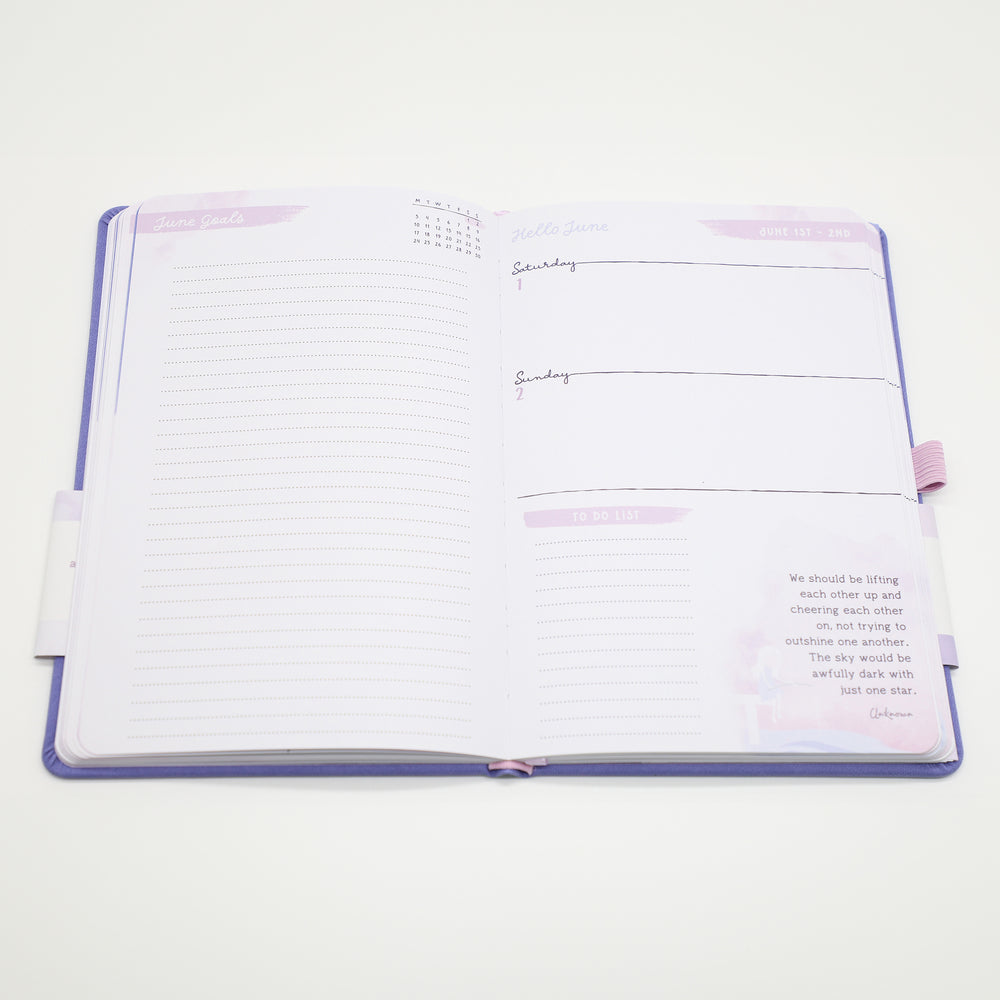 June Goals
M T W T F S S
1 2
3 4 5 6 7 8 9
10 11 12 13 14 15 16
17 18 19 20 21 22 23
24 25 26 27 28 29 30
Hello June
JUNE 1ST - 2ND
Saturday
1
Sunday
2
TO DO LIST
We should be lifting
each other up and
cheering each other
on, not trying to
outshine one another.
The sky would be
awfully dark with
just one star.
Unknown
a